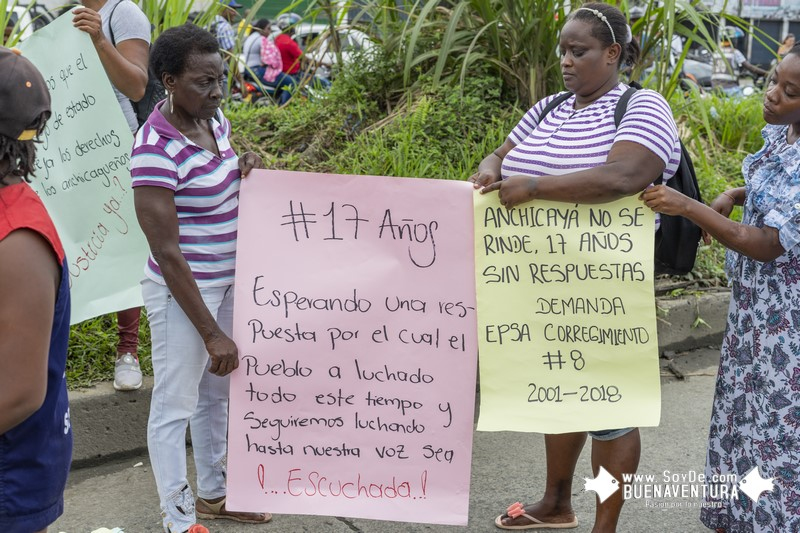 os que el
o de estado
ya los derechos
anchicagueños
Justicia ya?
#17 Años
Esperando una res-
puesta por el cual el
Pueblo a luchado
todo este tiempo y
Seguiremos luchando
hasta nuestra voz sea
¡...Escuchada..!
ANCHICAYÁ NO SE
RINDE, 17 AÑOS
SIN RESPUESTAS
DEMANDA
EPSA CORREGIMIENTO
#8
2001-2018
www.SoyDe.com
BUENAVENTURA
Pasión por lo nuestro